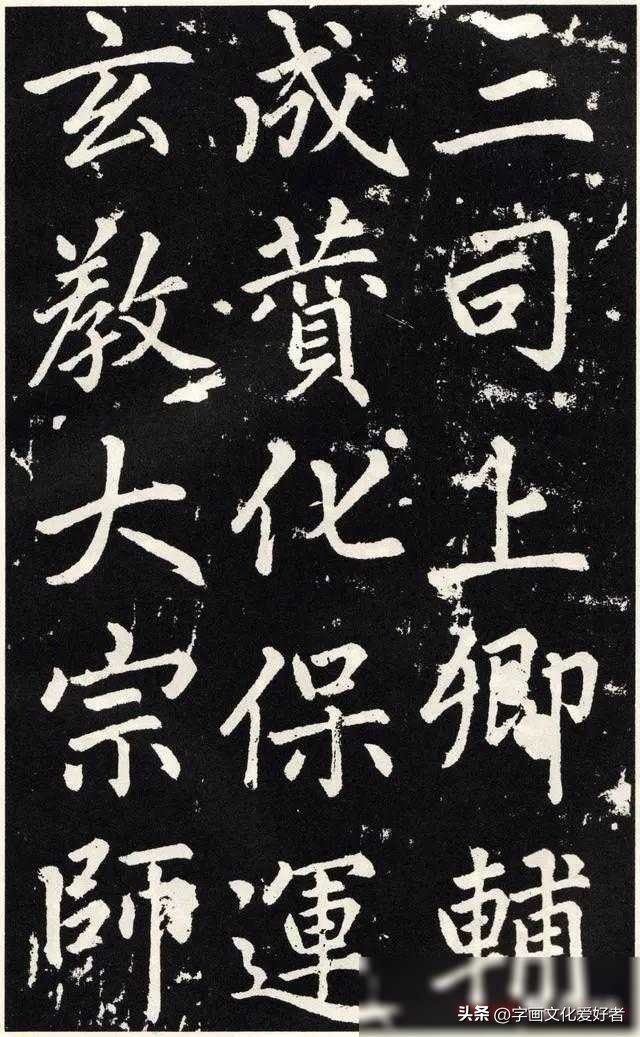 三司上卿輔
成贊化保運
玄教大宗師
头条 @字画文化爱好者